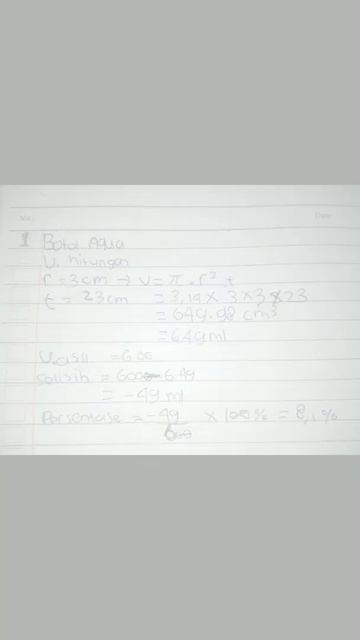 No.: Date:
1 Botol Aqua
V. hitungan
r = 3 cm → V = π . r² . t
t = 23 cm = 3,14 x 3 x 3 x 23
= 649.98 cm³
= 649 ml
V. asli = 600
Selisih = 600 - 649
= -49 ml
Persentase = -49/600 x 100% = 8,1%